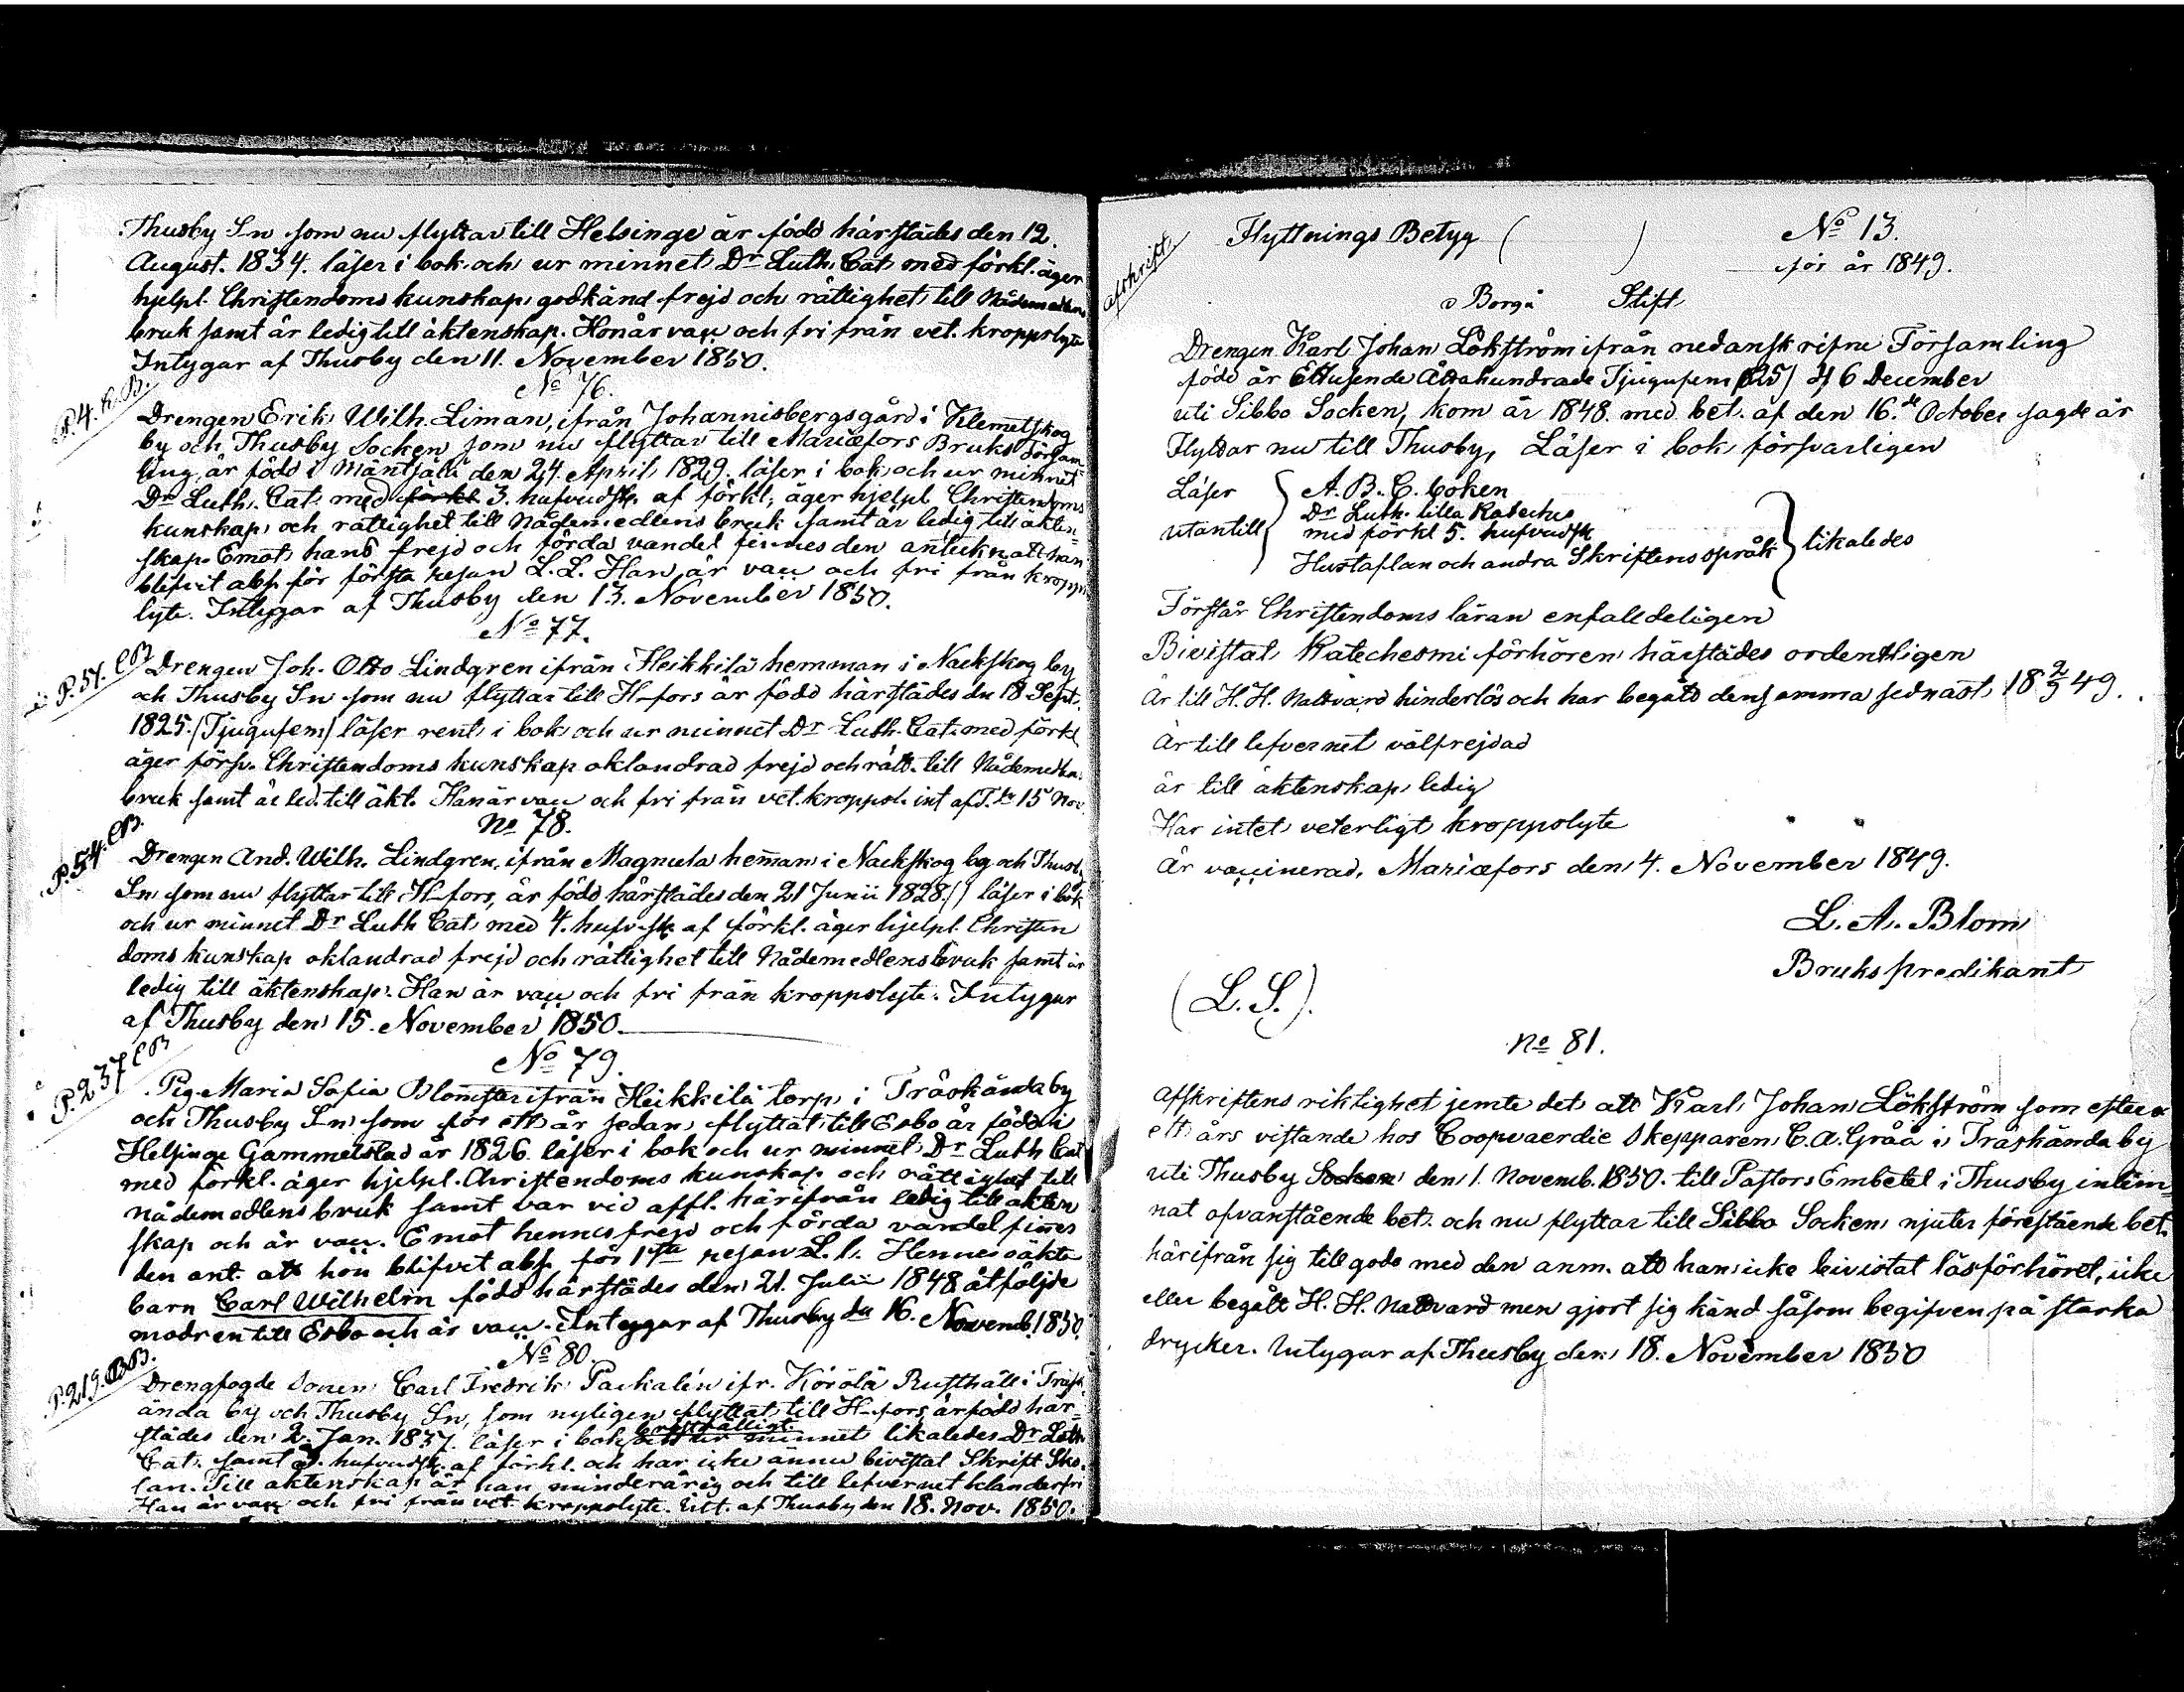 Thusby Sn som nu flyttar till Helsinge är född härstädes den 12.
August. 1834. läser i bok och ur minnet Dr Luth. Cat. med förkl. äger
hjelpl. Christendoms kunskap, godkänd frejd och rättighet till Nådemedlens
bruk samt är ledig till äktenskap. Hon är vacc och fri från vet. kroppslyte
Intygar af Thusby den 11. November 1850.
No 76.
P. 4. K.B.
Drengen Erik Wilh. Liman, ifrån Johannisbergsgård i Klemetskog
by och Thusby Socken som nu flyttar till Mariæfors Bruks Försam=
ling, är född i Mäntsälä den 24. April 1829. läser i bok och ur minnet
Dr Luth. Cat. med förkl 3. hufvudst. af förkl, äger hjelpl Christendoms
kunskap och rättighet till Nådemedlens bruk samt är ledig till äkten=
skap. Emot hans frejd och förda vandel finnes den anteckn att han
blifvit abs. för första resan L. L. Han är vacc och fri från kropps
lyte. Intygar af Thusby den 13. November 1850.
No 77.
P. 51. CB
Drengen Joh. Otto Lindgren ifrån Heikkilä hemman i Nackskog by
och Thusby Sn som nu flyttar till H-fors är född härstädes den 18 Sept.
1825. (Tjugufem) läser rent i bok och ur minnet Dr Luth. Cat. med förkl
äger försv. Christendoms kunskap oklandrad frejd och rätt. till Nådemedlens
bruk samt är led. till äkt. Han är vacc och fri från vet. kroppsl. int af T. dn 15 Nov
No 78.
P. 54. CB.
Drengen And. Wilh. Lindgren, ifrån Magnula hemman i Nackskog by och Thusby
Sn som nu flyttar till H-fors, är född härstädes den 21 Junii 1828. läser i bok
och ur minnet Dr Luth Cat. med 4. hufv.st. af förkl. äger hjelpl. Christen
doms kunskap oklandrad frejd och rättighet till Nådemedlens bruk samt är
ledig till äktenskap. Han är vacc och fri från kroppslyte. Intygar
af Thusby den 15. November 1850.
No 79.
P. 237 CB
Pig. Maria Sofia Blomster ifrån Heikkilä torp i Träskända by
och Thusby Sn som för ett år sedan flyttat till Esbo är född i
Helsinge Gammelstad år 1826. läser i bok och ur minnet Dr Luth Cat
med förkl. äger hjelpl. Christendoms kunskap och rättighet till
nådemedlens bruk samt var vid affl. härifrån ledig till äkten
skap och är vacc. Emot hennes frejd och förda vandel finnes
den ant. att hon blifvit abs för 1sta resan L. l. Hennes oäkta
barn Carl Wilhelm född härstädes den 21. Julii 1848 åtföljde
modren till Esbo och är vacc. Intygar af Thusby den 16. Novemb. 1850.
No 80.
P. 219. BB.
Drengfogde Sonen Carl Fredrik Packalén ifr. Körölä Rusthåll i Träsk
ända by och Thusby Sn, som nyligen flyttat till H-fors är född här=
städes den 2. Jan. 1837. läser i bok ur minnet likaledes Dr Luth
Cat. samt hufvudst. af förkl. och har icke ännu bivistat Skrift Sko
lan. Till äktenskap är han minderårig och till lefvernet klanderfri
Han är vacc och fri från vet. kroppslyte. Int. af Thusby den 18. Nov. 1850.
afskrift
Flyttnings Betyg ( )
No 13.
för år 1849.
Borgå Stift
Drengen Karl Johan Lökström ifrån nedanskrifne Församling
född år Ettusende Åttahundrade Tjugufem (25) d 6 December
uti Sibbo Socken, kom år 1848. med bet. af den 16.de October sagde år
Flyttar nu till Thusby, Läser i bok försvarligen
Läser utantill
A. B. C. boken
Dr Luth. lilla Kateches
med förkl 5. hufvudst
Hustaflan och andra Skriftens språk
likaledes
Förstår Christendoms läran enfalldeligen
Bivistat Katechesmi förhören härstädes ordentligen
Är till H. H. Nattvard hinderlös och har begått densamma sednast 18 2/9 49.
Är till lefvernet välfrejdad
är till äktenskap ledig
Har intet veterligt kroppslyte
Är vaccinerad, Mariæfors den 4. November 1849.
L. A. Blom
Brukspredikant
(L. S.).
No 81.
Afskriftens riktighet jemte det att Karl Johan Lökström som efter
ett års vistande hos Coopvaerdie Skepparen C. A. Gråå i Träskända by
uti Thusby Socken den 1. Novemb. 1850. till Pastors Embetet i Thusby inläm=
nat ofvanstående bet. och nu flyttar till Sibbo Socken njuter förestående bet.
härifrån sig till godo med den anm. att han icke bivistat läsförhöret, icke
eller begått H. H. Nattvard men gjort sig känd såsom begifven på starka
drycker. Intygar af Thusby den 18. November 1850